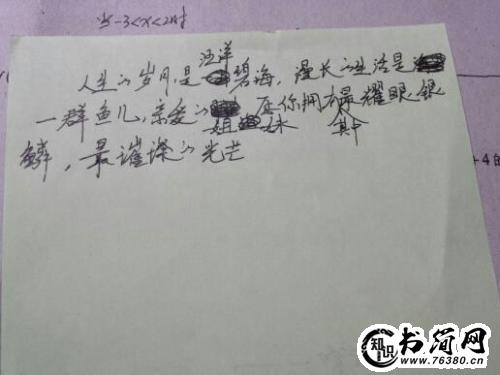 当-3<x<2时
汪洋
人生的岁月,是碧海,漫长的生活是
一群鱼儿,亲爱的 愿你拥有最耀眼银
姐妹 其中
鳞,最璀璨的光芒
+4的
知识 书简网
www.76380.cn